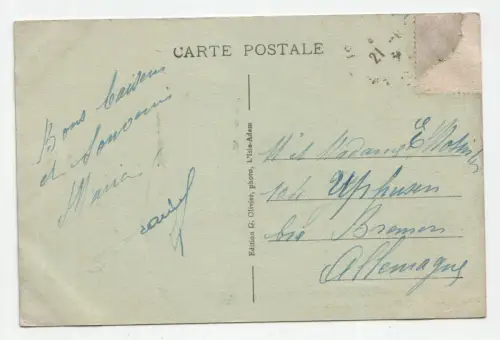 CARTE POSTALE
21
Bons baisers
et souvenir
Maria
Edition G. Olivier, photo, L'Isle-Adam
M et Madame E
104 Uphusen
bei Bremen
Allemagne